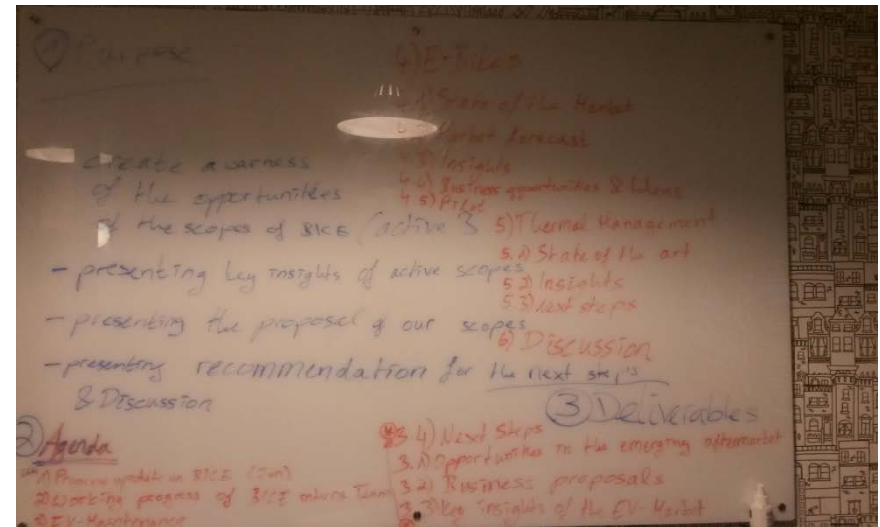 1 Purpose
- create awarness
of the opportunities
of the scopes of BICE (active 3
- presenting key insights of active scopes
- presenting the proposal of our scopes
- presenting recommendation for the next steps
& Discussion
2 Agenda
1) Process update on BICE
2) Working progress of BICE
3) EV-Maintenance
4) E-Bikes
4.1) State of the Market
Market forecast
4.3) Insights
4.4) Business opportunities &
4.5)
5) Thermal Management
5.1) State of the art
5.2) Insights
5.3) next steps
6) Discussion
3 Deliverables
3.4) Next Steps
3.1) Opportunities in the emerging aftermarket
3.2) Business proposals
3.3) Key insights of the EV-Market